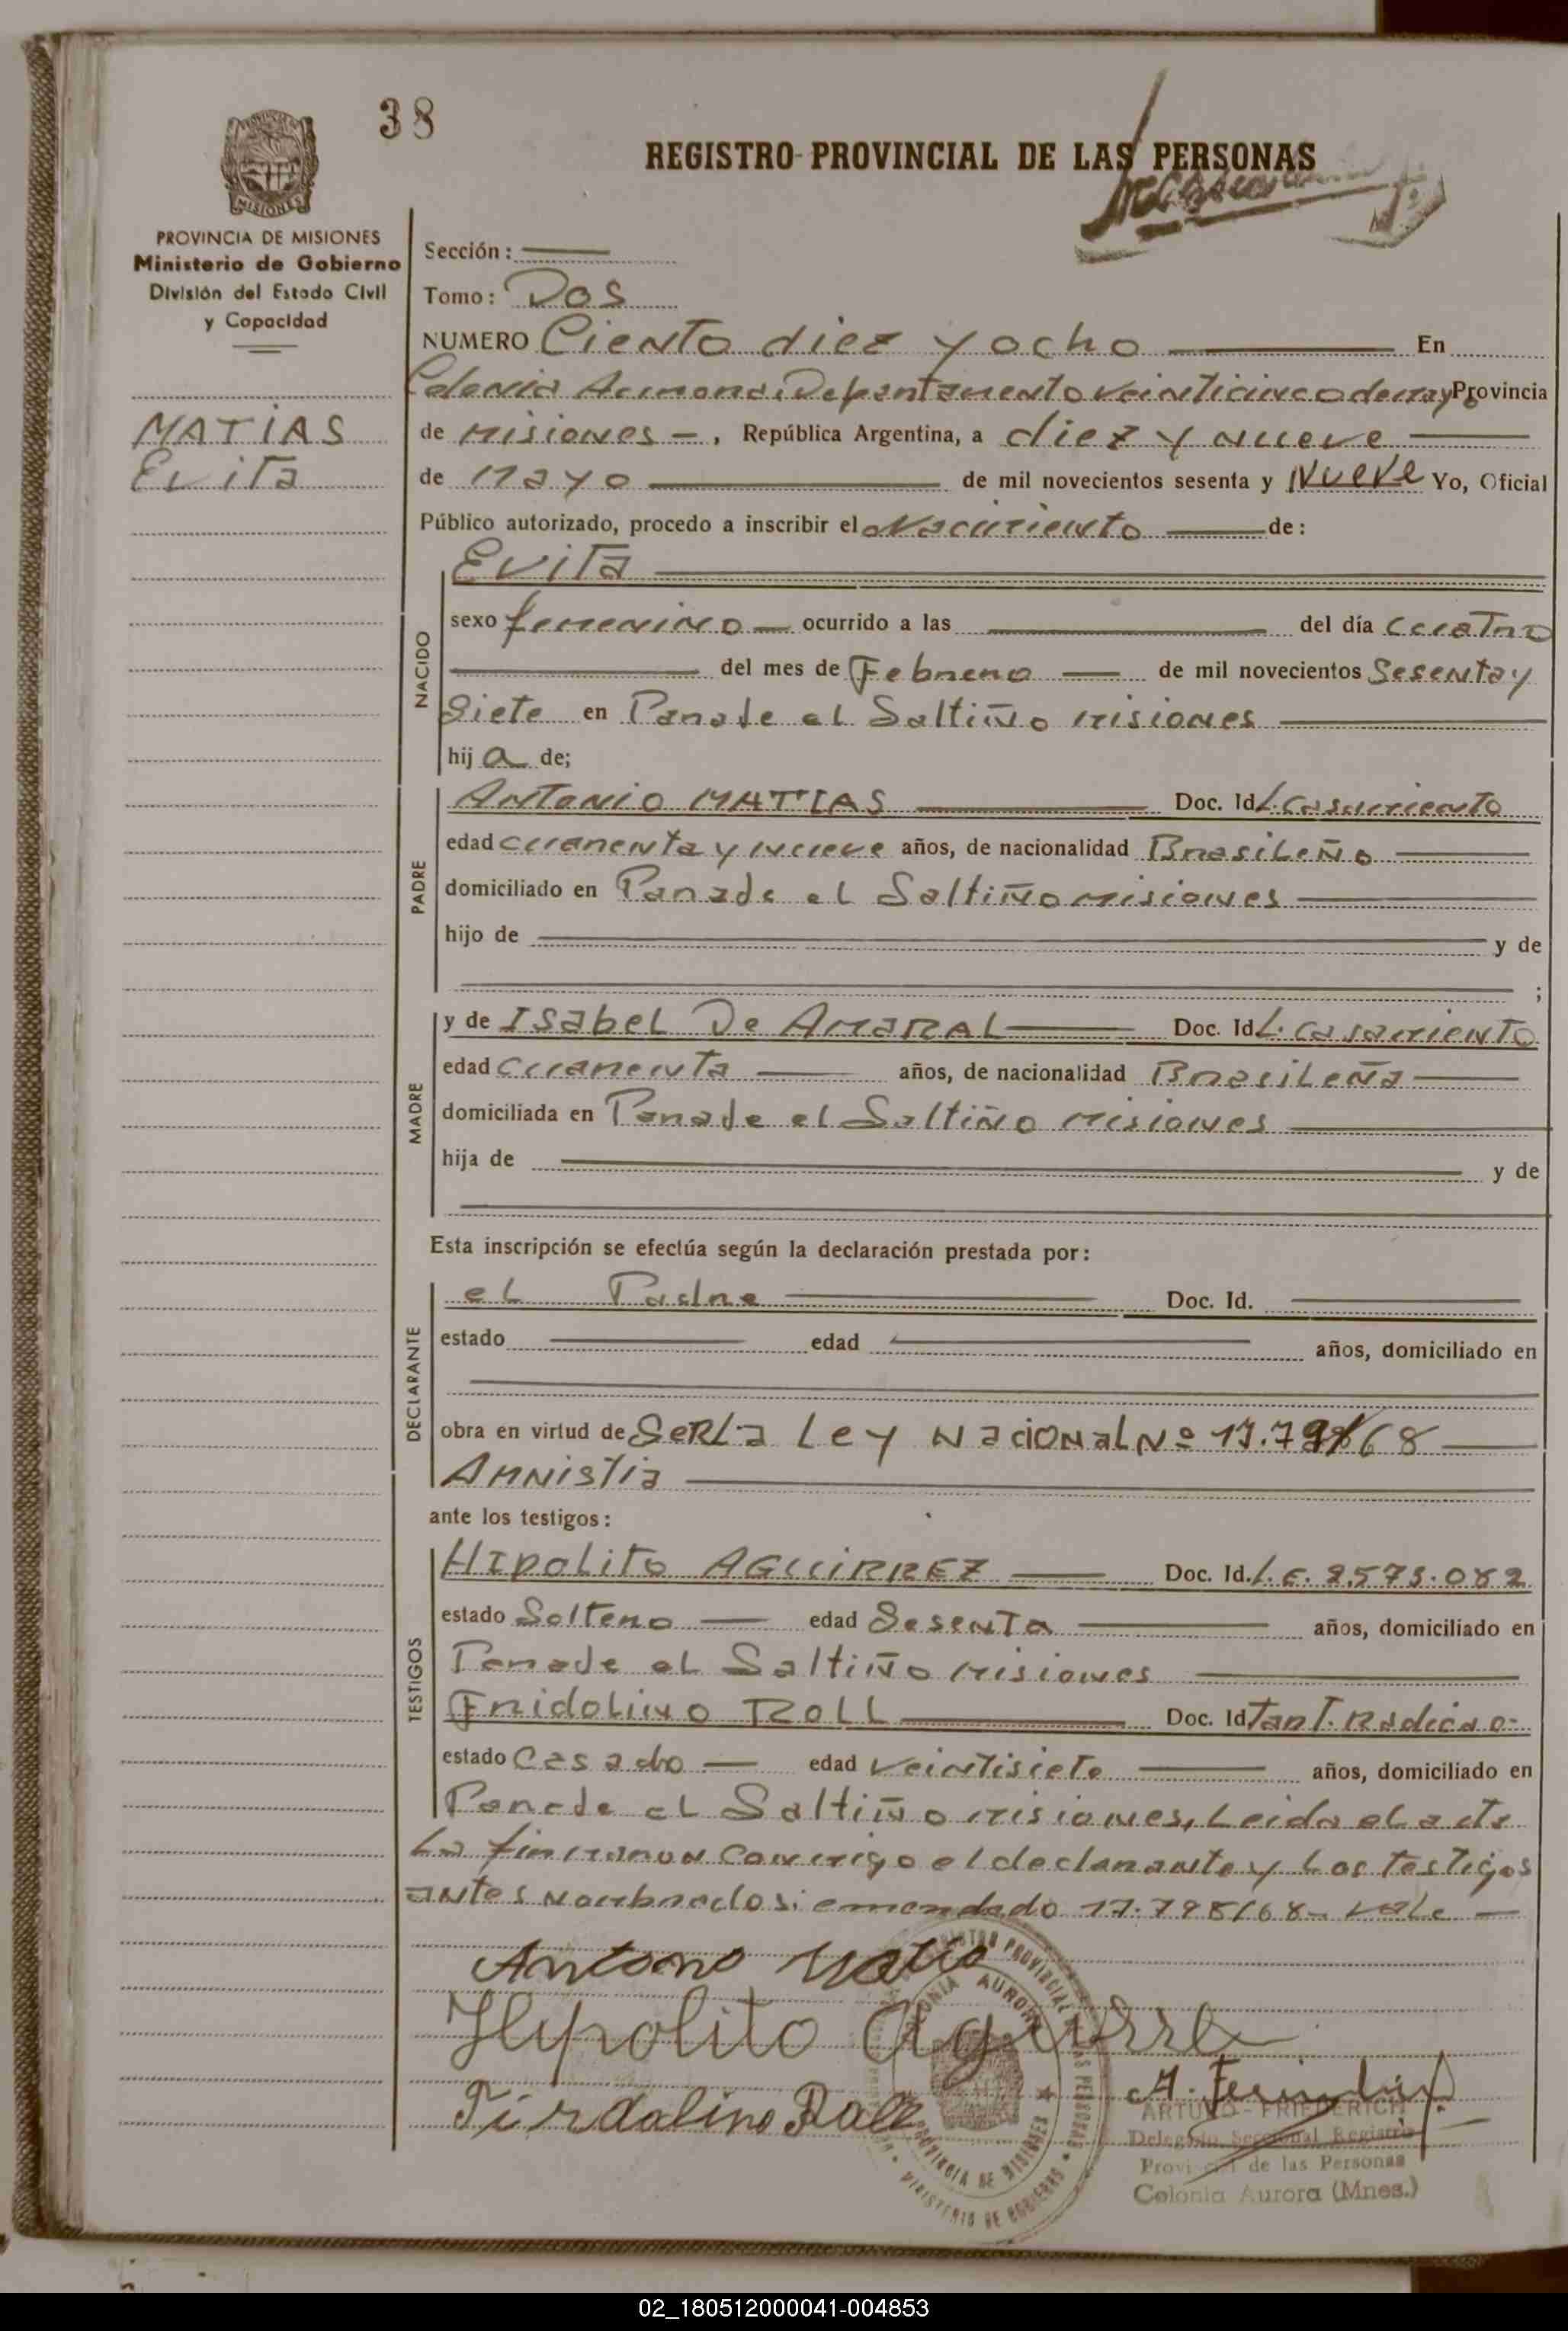 38
REGISTRO PROVINCIAL DE LAS PERSONAS
MISIONES
PROVINCIA DE MISIONES
Ministerio de Gobierno
División del Estado Civil
y Capacidad
MATIAS
Evita
Sección:
Tomo: Dos
NUMERO Ciento diez y ocho En
Colonia Aurora, Departamento veinticinco de mayo Provincia
de Misiones -, República Argentina, a diez y nueve
de Mayo de mil novecientos sesenta y Nueve Yo, Oficial
Público autorizado, procedo a inscribir el Nacimiento de:
Evita
NACIDO
sexo femenino ocurrido a las del día cuatro
del mes de Febrero de mil novecientos Sesenta y
Siete en Parade el Saltiño Misiones
hija de;
PADRE
Antonio MATIAS Doc. Id L. Casamiento
edad cuarenta y nueve años, de nacionalidad Brasileño
domiciliado en Parade el Saltiño Misiones
hijo de y de
;
MADRE
y de Isabel De AMARAL Doc. Id L. Casamiento
edad cuarenta años, de nacionalidad Brasileña
domiciliada en Parade el Saltiño Misiones
hija de y de
Esta inscripción se efectúa según la declaración prestada por:
DECLARANTE
el Padre Doc. Id.
estado edad años, domiciliado en
obra en virtud de Ser La Ley Nacional Nº 17.798/68
Amnistia
ante los testigos:
TESTIGOS
Hipolito AGUIRREZ Doc. Id. L.E.
estado Soltero edad Sesenta años, domiciliado en
Parade el Saltiño Misiones
Fridolino ROLL Doc. Id Tart. Radicao-
estado Casado edad veintisiete años, domiciliado en
Parade el Saltiño Misiones, Leida el acta
La firmaron conmigo el declarante y Los testigos
antes nombrados: emendado 17.798/68- vale
Antonio Matia
Hipolito Aguirre
Firdolino Roll
A. Friederich
ARTURO - FRIEDERICH
Delegado Seccional Registro
Provincial de las Personas
Colonia Aurora (Mnes.)
REGISTRO PROVINCIAL DE LAS PERSONAS
COLONIA AURORA
PROVINCIA DE MISIONES
MINISTERIO DE GOBIERNO
02_180512000041-004853